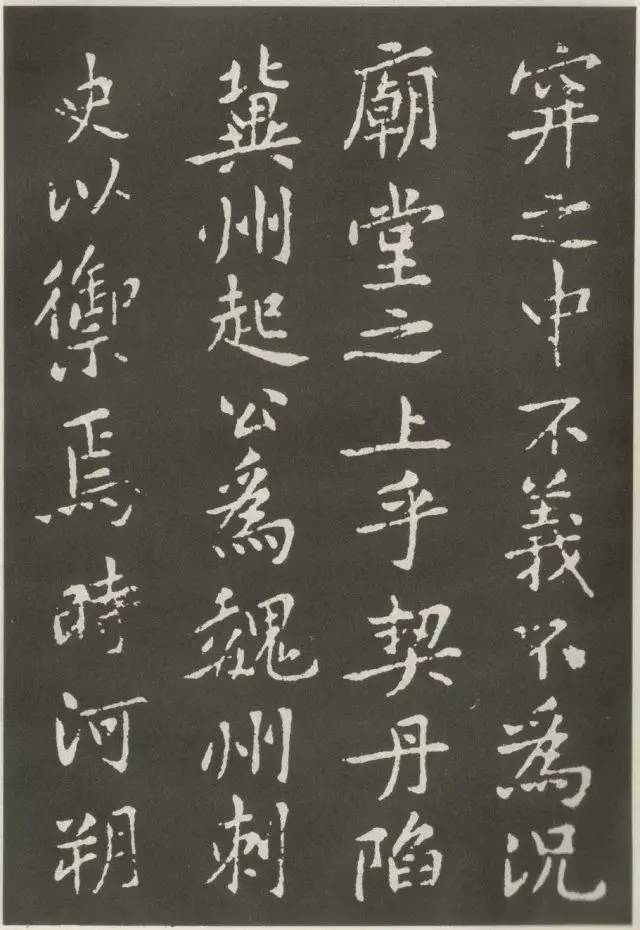 穽之中不義不為况
廟堂之上乎契丹陷
冀州起公為魏州刺
史以禦焉時河朔